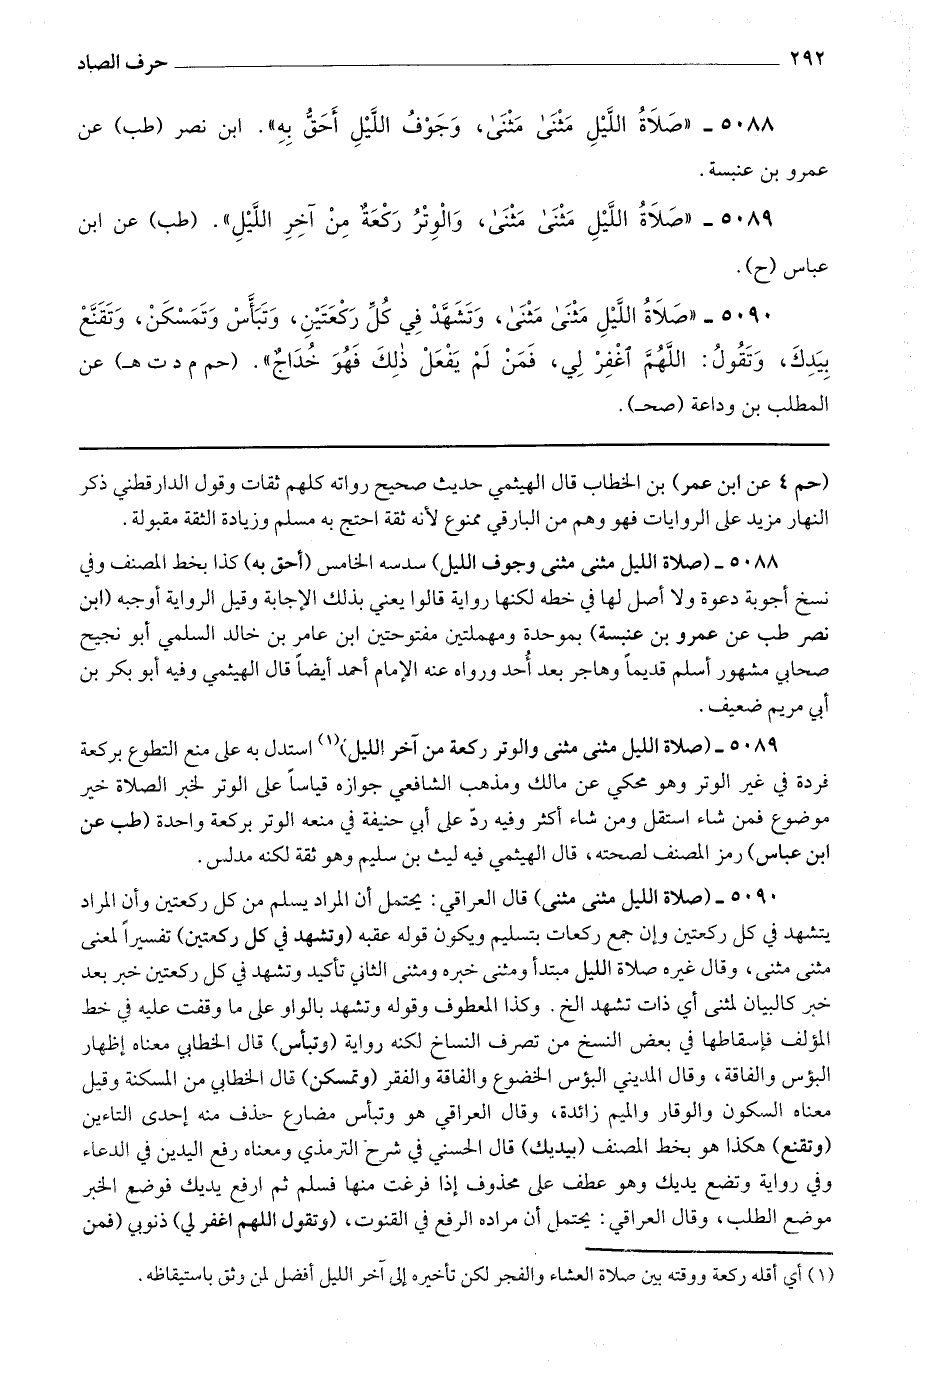 ٢٩٢ حرف الصاد
٥٠٨٨ ـ «صَلَاةُ اللَّيْلِ مَثْنَىٰ مَثْنَىٰ، وَجَوْفُ اللَّيْلِ أَحَقُّ بِهِ». ابن نصر (طب) عن
عمرو بن عنبسة.
٥٠٨٩ ـ «صَلَاةُ اللَّيْلِ مَثْنَىٰ مَثْنَىٰ، وَالْوِتْرُ رَكْعَةٌ مِنْ آخِرِ اللَّيْلِ». (طب) عن ابن
عباس (ح).
٥٠٩٠ ـ «صَلَاةُ اللَّيْلِ مَثْنَىٰ مَثْنَىٰ، وَتَشَهَّدْ فِي كُلِّ رَكْعَتَيْنِ، وَتَبَأَّسْ وَتَمَسْكَنْ، وَتَقَنَّعْ
بِيَدِكَ، وَتَقُولُ: اللَّهُمَّ ٱغْفِرْ لِي، فَمَنْ لَمْ يَفْعَلْ ذٰلِكَ فَهُوَ خُدَاجٌ». (حم م د ت هـ) عن
المطلب بن وداعة (صحـ).
(حم ٤ عن ابن عمر) بن الخطاب قال الهيثمي حديث صحيح رواته كلهم ثقات وقول الدارقطني ذكر
النهار مزيد على الروايات فهو وهم من البارقي ممنوع لأنه ثقة احتج به مسلم وزيادة الثقة مقبولة.
٥٠٨٨ ـ (صلاة الليل مثنى مثنى وجوف الليل) سدسه الخامس (أحق به) كذا بخط المصنف وفي
نسخ أجوبة دعوة ولا أصل لها في خطه لكنها رواية قالوا يعني بذلك الإجابة وقيل الرواية أوجبه (ابن
نصر طب عن عمرو بن عنبسة) بموحدة ومهملتين مفتوحتين ابن عامر بن خالد السلمي أبو نجيح
صحابي مشهور أسلم قديماً وهاجر بعد أُحد ورواه عنه الإمام أحمد أيضاً قال الهيثمي وفيه أبو بكر بن
أبي مريم ضعيف.
٥٠٨٩ ـ (صلاة الليل مثنى مثنى والوتر ركعة من آخر الليل)(١) استدل به على منع التطوع بركعة
فردة في غير الوتر وهو محكي عن مالك ومذهب الشافعي جوازه قياساً على الوتر لخبر الصلاة خير
موضوع فمن شاء استقل ومن شاء أكثر وفيه ردّ على أبي حنيفة في منعه الوتر بركعة واحدة (طب عن
ابن عباس) رمز المصنف لصحته، قال الهيثمي فيه ليث بن سليم وهو ثقة لكنه مدلس.
٥٠٩٠ ـ (صلاة الليل مثنى مثنى) قال العراقي: يحتمل أن المراد يسلم من كل ركعتين وأن المراد
يتشهد في كل ركعتين وإن جمع ركعات بتسليم ويكون قوله عقبه (وتشهد في كل ركعتين) تفسيراً لمعنى
مثنى مثنى، وقال غيره صلاة الليل مبتدأ ومثنى خبره ومثنى الثاني تأكيد وتشهد في كل ركعتين خبر بعد
خبر كالبيان لمثنى أي ذات تشهد الخ. وكذا المعطوف وقوله وتشهد بالواو على ما وقفت عليه في خط
المؤلف فإسقاطها في بعض النسخ من تصرف النساخ لكنه رواية (وتبأس) قال الخطابي معناه إظهار
البؤس والفاقة، وقال المديني البؤس الخضوع والفاقة والفقر (وتمسكن) قال الخطابي من المسكنة وقيل
معناه السكون والوقار والميم زائدة، وقال العراقي هو وتبأس مضارع حذف منه إحدى التاءين
(وتقنع) هكذا هو بخط المصنف (بيديك) قال الحسني في شرح الترمذي ومعناه رفع اليدين في الدعاء
وفي رواية وتضع يديك وهو عطف على محذوف إذا فرغت منها فسلم ثم ارفع يديك فوضع الخبر
موضع الطلب، وقال العراقي: يحتمل أن مراده الرفع في القنوت، (وتقول اللهم اغفر لي) ذنوبي (فمن
(١) أي أقله ركعة ووقته بين صلاة العشاء والفجر لكن تأخيره إلى آخر الليل أفضل لمن وثق باستيقاظه.